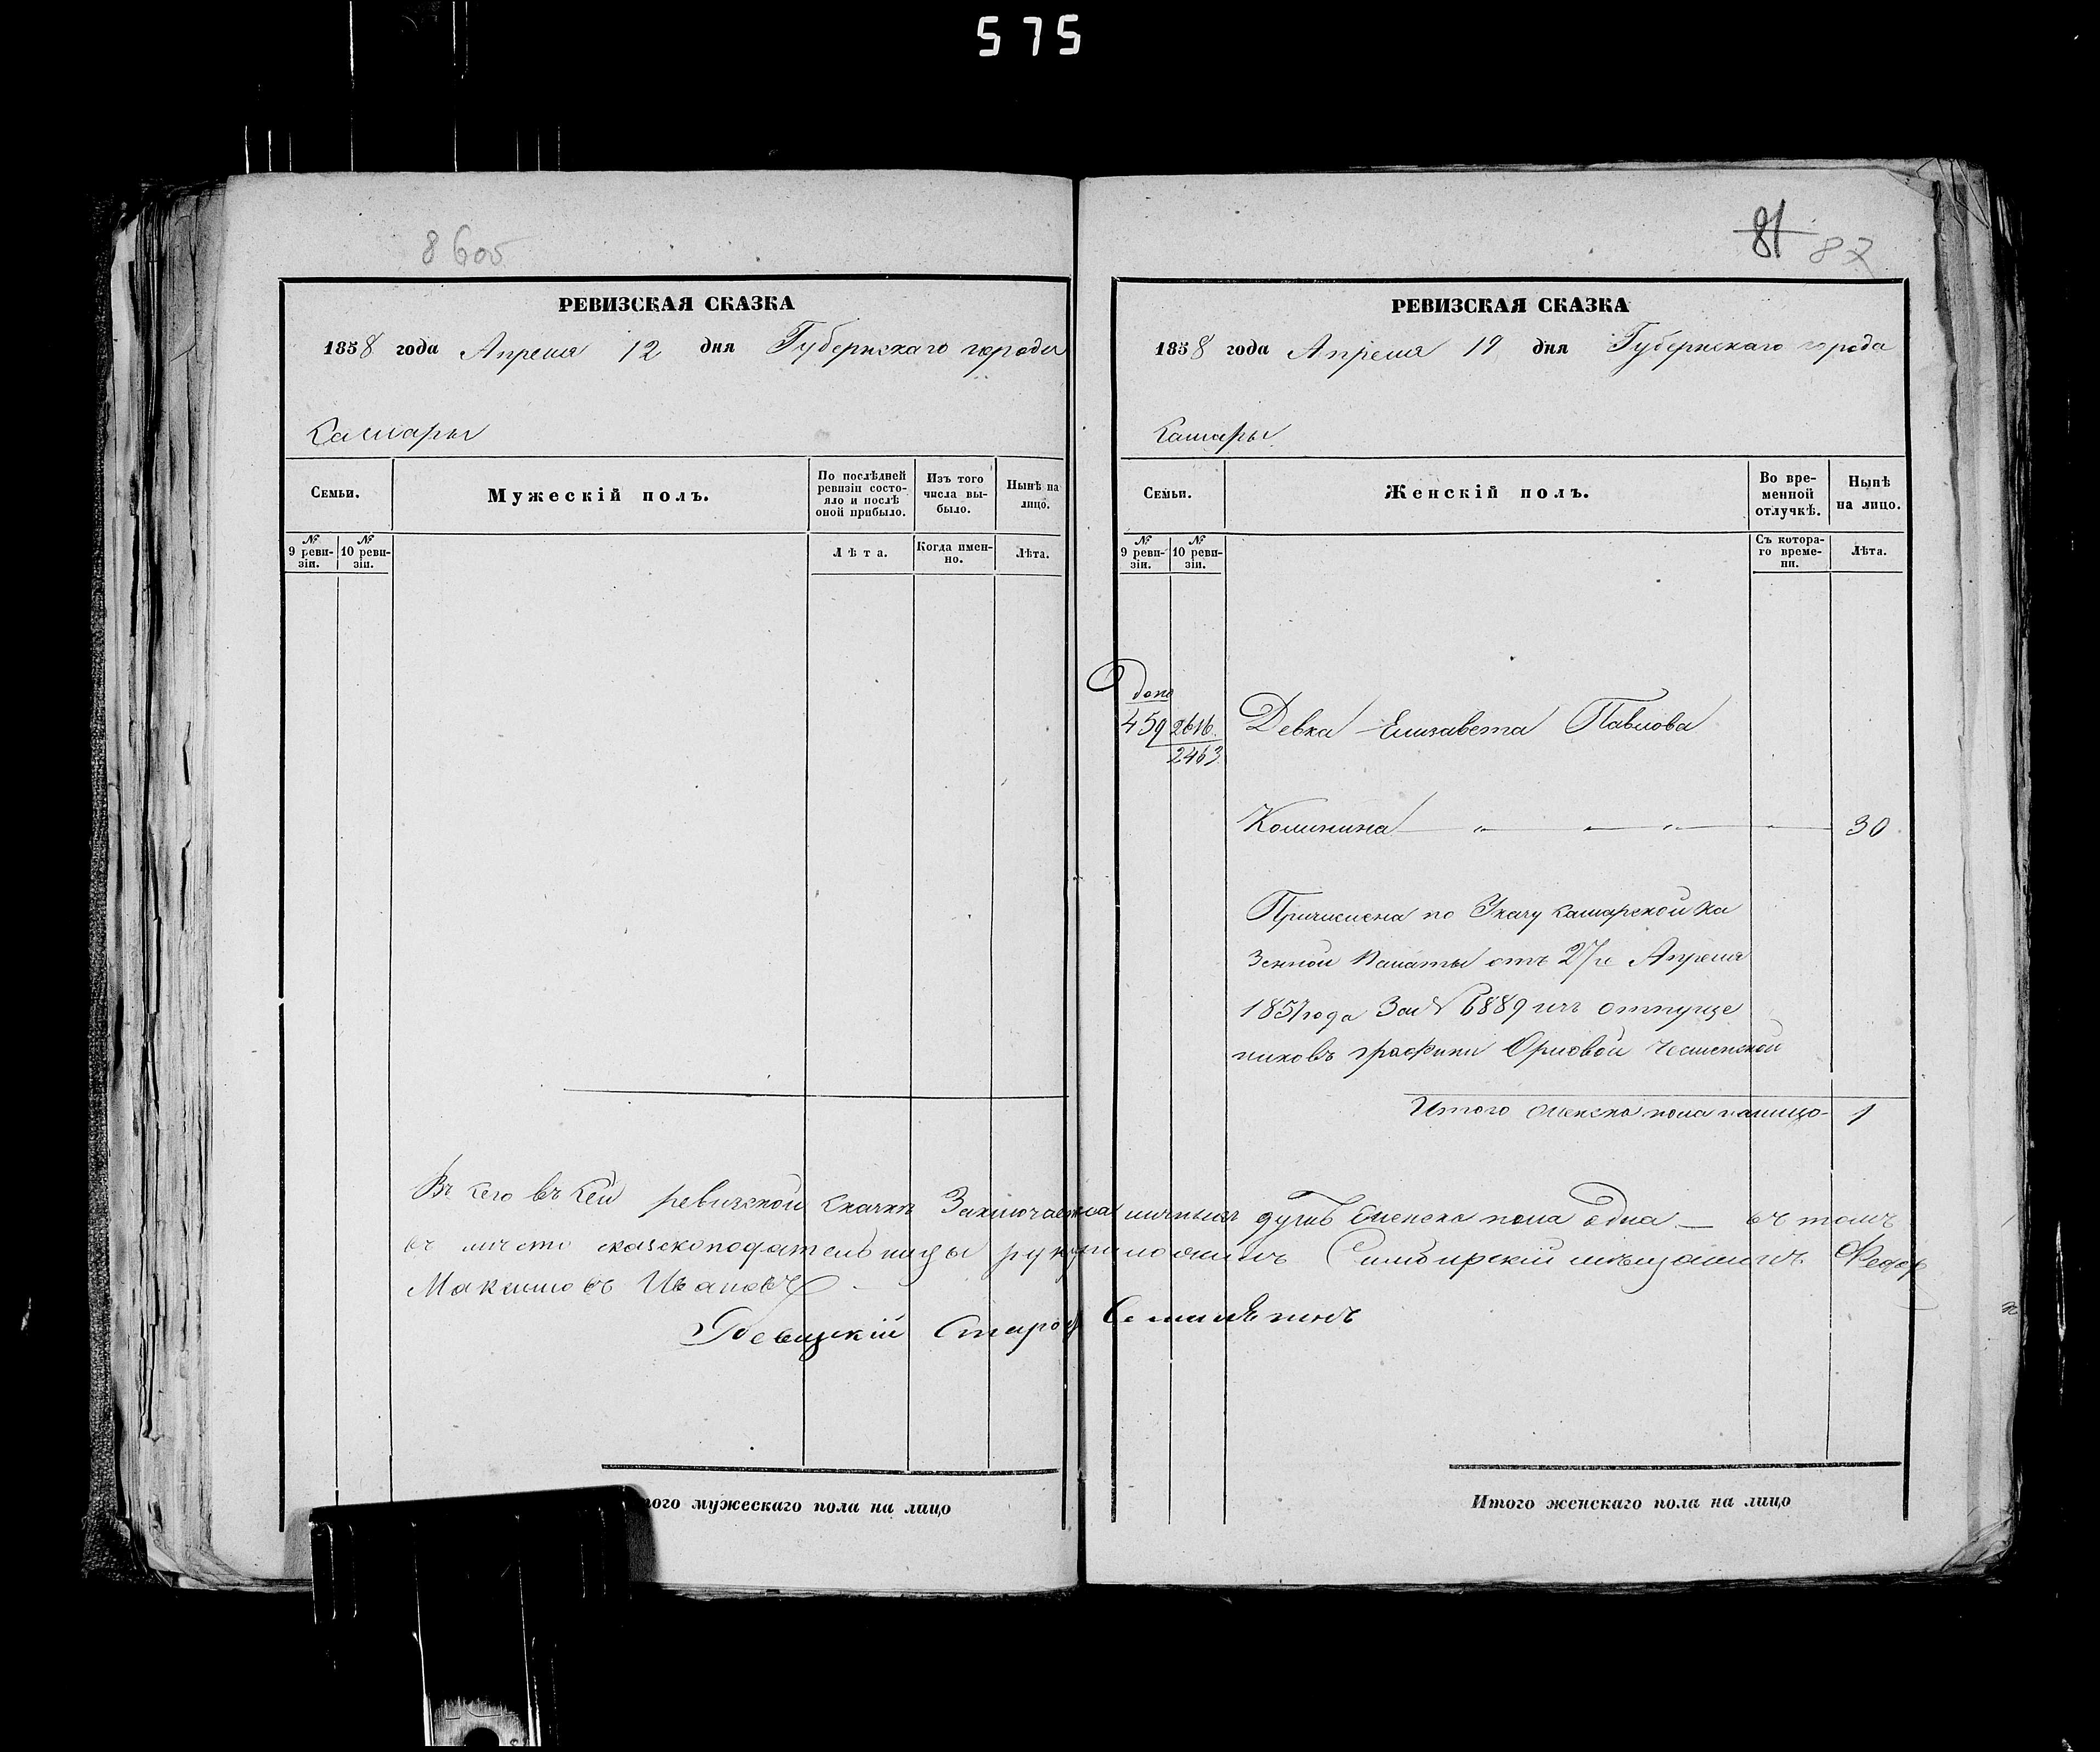 575
8 605
РЕВИЗСКАЯ СКАЗКА
1858 года Апреля 12 дня Губернскаго города
Самары
Семьи.
Мужескій полъ.
По послѣдней ревизіи состояло и послѣ оной прибыло.
Изъ того числа выбыло.
Нынѣ на лицо.
№ 9 ревизіи.
№ 10 ревизіи.
Лѣта.
Когда именно.
Лѣта.
81 87
РЕВИЗСКАЯ СКАЗКА
1858 года Апреля 19 дня Губернскаго города
Самары
Семьи.
Женскій полъ.
Во временной отлучкѣ.
Нынѣ на лицо.
№ 9 ревизіи.
№ 10 ревизіи.
Съ котораго времени.
Лѣта.
допо
459 2616 Девка Елизавета Павлова
2463
Калинина 30
Причислена по Указу Самарской Ка
зенной Палаты отъ 27го Апреля
1857 года За № 6889 изъ отпуще
никовъ графини Орловой Чесменской
Итого женска пола налицо 1
Въ сего въ сей ревизской сказкѣ Заключается наличныхъ душъ женска пола одна — въ томъ
въ место сказкоподательницы руку приложилъ Симбирскій мещанинъ Федор
Максимовъ Ивановъ
Посадскій Староста
Итого мужескаго пола на лицо
Итого женскаго пола на лицо